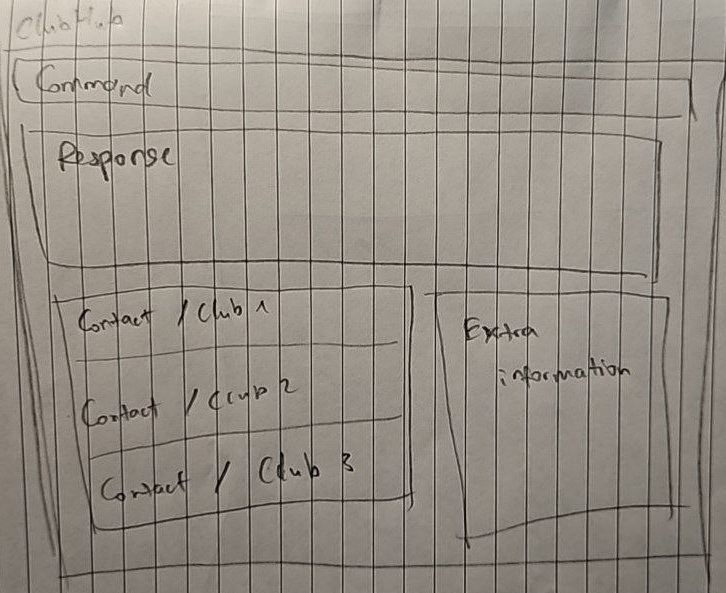 ClubHub
Command
Response
Contact / Club 1
Contact / Club 2
Contact / Club 3
Extra
information